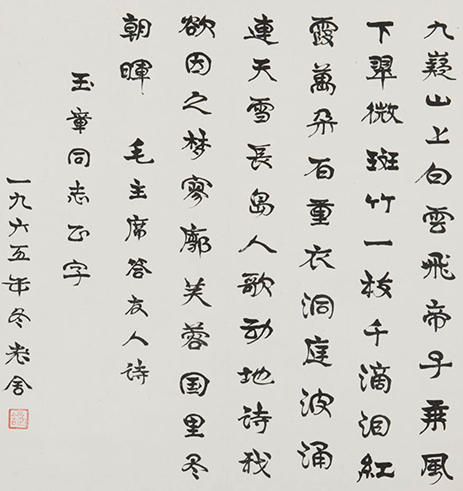 九嶷山上白雲飛帝子乘風
下翠微斑竹一枝千滴泪紅
霞萬朵百重衣洞庭波涌
連天雪長島人歌动地詩我
欲因之梦寥廓芙蓉国里尽
朝暉 毛主席答友人詩
玉章同志正字
一九六五年冬老舍